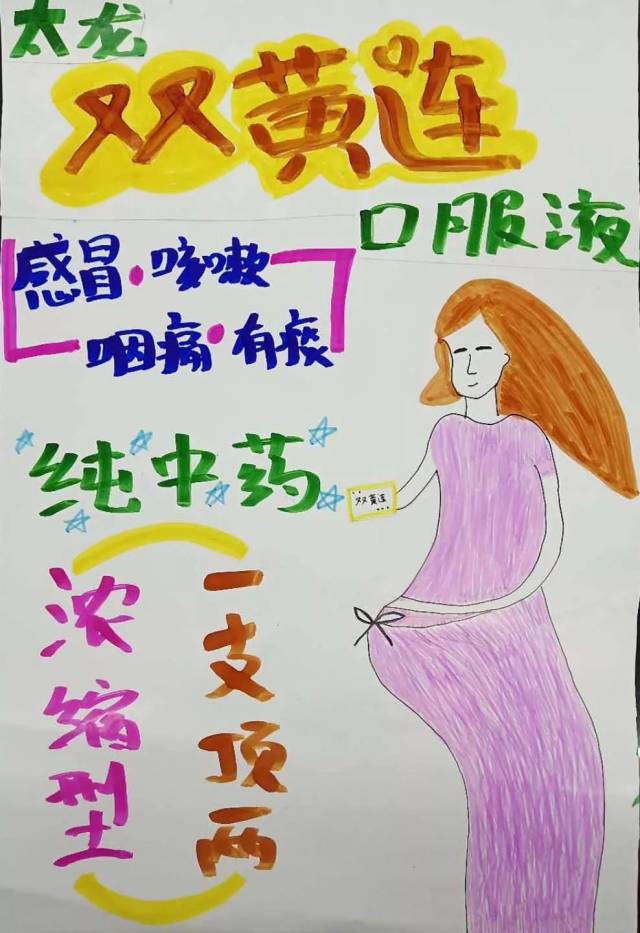 太龙
双黄连
口服液
感冒·咳嗽
咽痛·有痰
纯中药
双黄连
浓缩型
一支顶两